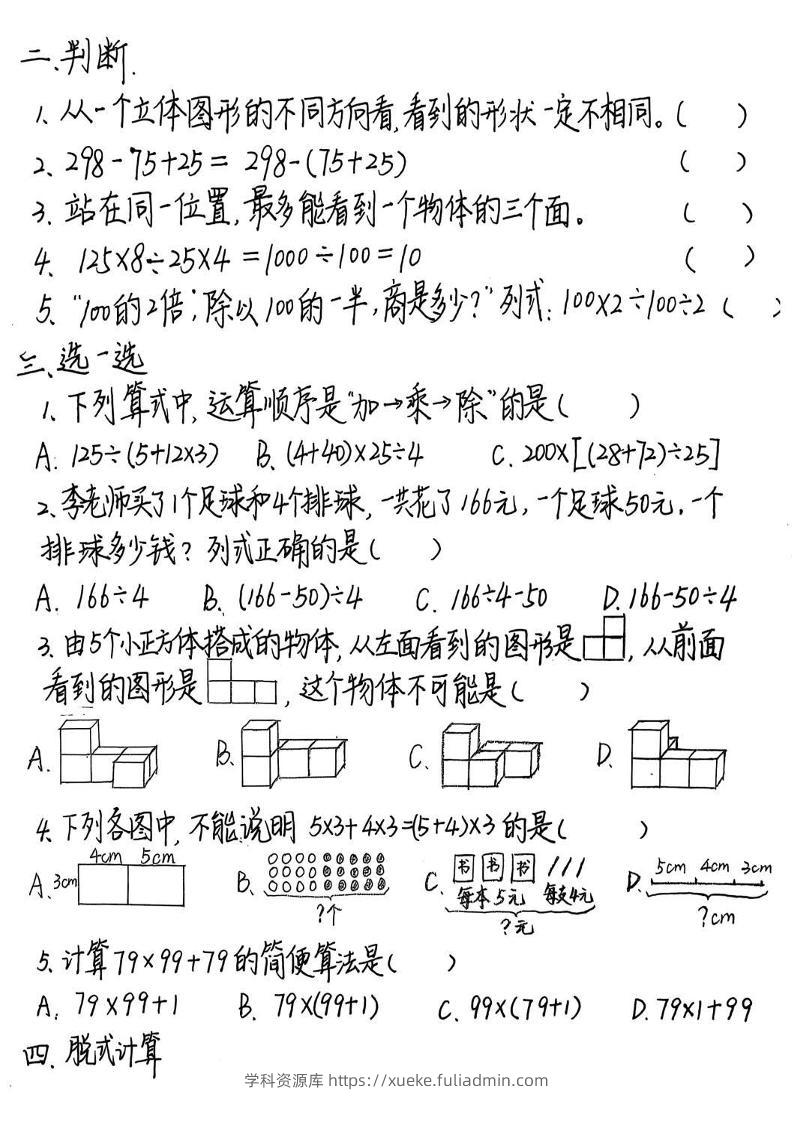 二、判断.
1、从一个立体图形的不同方向看,看到的形状一定不相同。(    )
2、298-75+25= 298-(75+25)    (    )
3、站在同一位置,最多能看到一个物体的三个面。    (    )
4、125×8÷25×4 =1000÷100=10    (    )
5、"100的2倍;除以100的一半,商是多少?"列式:100×2÷100÷2 (    )
三、选一选
1、下列算式中,运算顺序是"加→乘→除"的是(    )
A. 125÷(5+12×3)  B. (4+40)×25÷4  C. 200×[(28+72)÷25]
2、李老师买了1个足球和4个排球,一共花了166元,一个足球50元.一个
排球多少钱?列式正确的是(    )
A. 166÷4  B. (166-50)÷4  C. 166÷4-50  D. 166-50÷4
3、由5个小正方体搭成的物体,从左面看到的图形是 ,从前面
看到的图形是 ,这个物体不可能是(    )
A.  B.  C.  D.
4、下列各图中,不能说明 5×3+4×3=(5+4)×3 的是(    )
A. 3cm 4cm 5cm  B. ?个  C. 书 书 书 每本5元 每支4元 ?元  D. 5cm 4cm 3cm ?cm
5、计算79×99+79的简便算法是(    )
A. 79×99+1  B. 79×(99+1)  C. 99×(79+1)  D. 79×1+99
四、脱式计算
学科资源库 https://xueke.fuliadmin.com